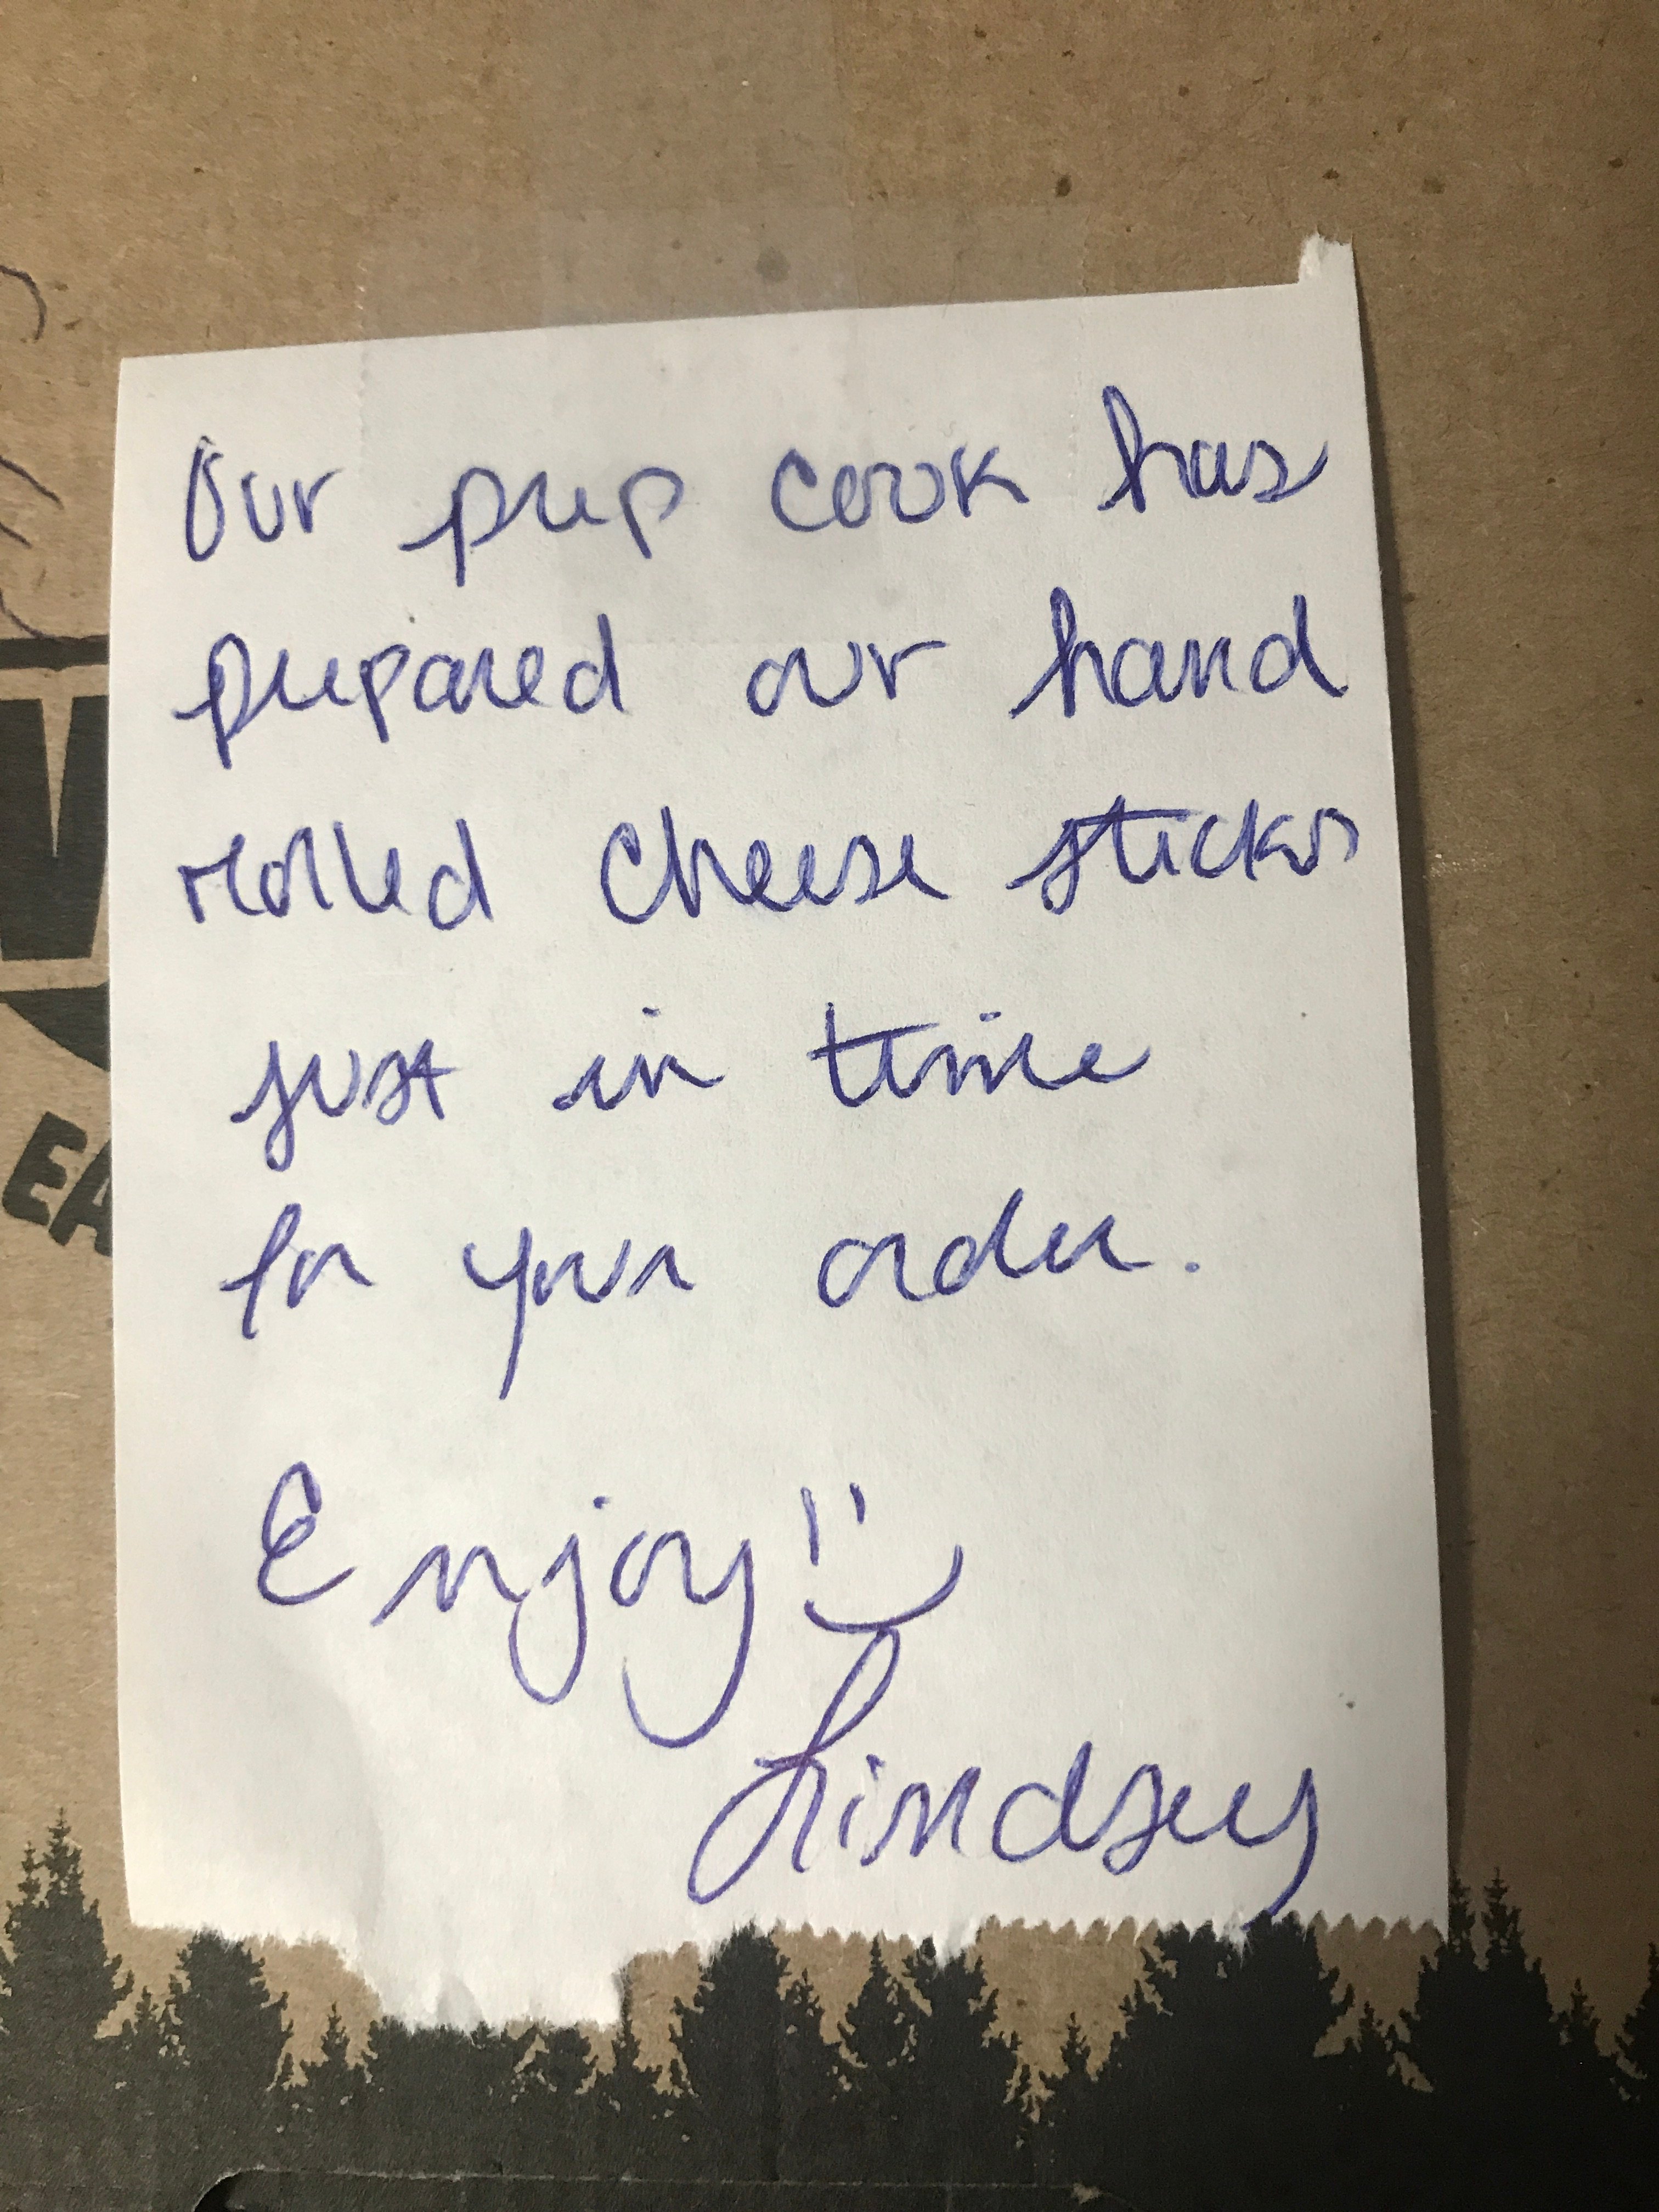 Our prep cook has
prepared our hand
rolled cheese sticks
just in time
for your order.
Enjoy! :)
Lindsey
EA